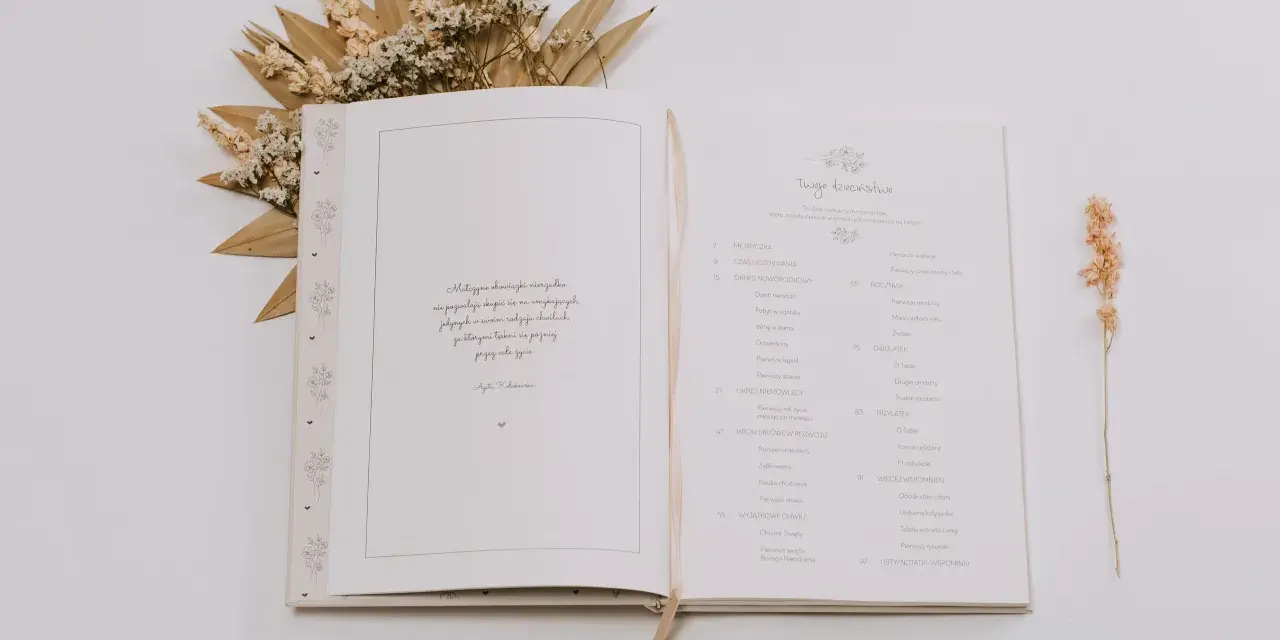 Matczyne obowiązki nierzadko
nie pozwalają skupić się na umykających,
jedynych w swoim rodzaju chwilach,
za którymi tęskni się później
przez całe życie.
Agata
Twoje dzieciństwo
7 METRYCZKA
9 CZAS OCZEKIWANIA
15 OKRES NOWORODKOWY
Dzień narodzin
Pobyt w szpitalu
Witaj w domu
Odwiedziny
Pierwsza kąpiel
Pierwszy spacer
27 OKRES NIEMOWLĘCY
Pierwszy rok życia
miesiąc po miesiącu
47 KROKI MILOWE W ROZWOJU
Ząbkowanie
Nauka chodzenia
Pierwsze słowa
55 WYJĄTKOWE CHWILE
Chrzest Święty
Pierwsze święta
Bożego Narodzenia
Pierwsze wakacje
Pierwszy dzień mamy i taty
65 ROCZNIAK
Pierwsze urodziny
Masz cztery roku
75 DWULATEK
O Tobie
Drugie urodziny
83 TRZYLATEK
O Tobie
Trzecie urodziny
Przedszkole
91 WIĘCEJ WSPOMNIEŃ
Odcisk stóp i dłoni
Ulubione kołysanki
Tabela wzrostu i wagi
Pierwszy rysunek
97 LISTY/NOTATKI/WSPOMINKI